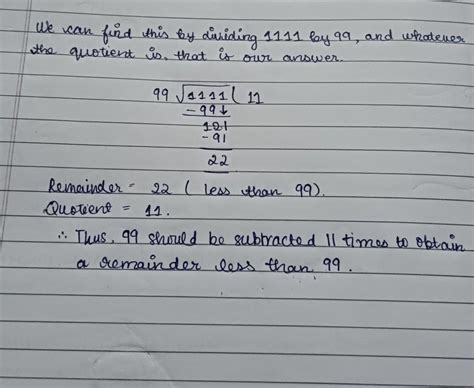 We can find this by dividing 1111 by 99, and whatever
the quotient is, that is our answer.
99 √1111 ( 11
- 99↓
121
- 91
22
Remainder = 22 ( less than 99).
Quotient = 11.
∴ Thus, 99 should be subtracted 11 times to obtain
a remainder less than 99.